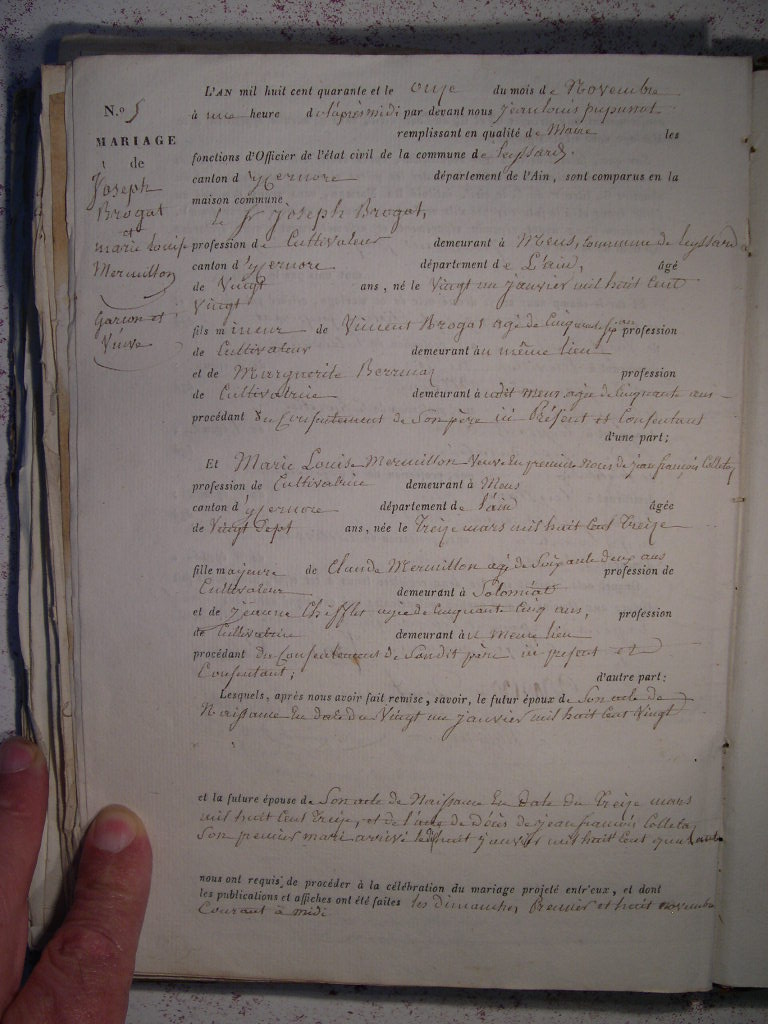 N.º 5
MARIAGE
de
Joseph
Brogat
et
marie Louise
Mermillon
Garcon et
Veuve
L'AN mil huit cent quarante et le onze du mois de Novembre
à une heure d'elaprès midi par devant nous jean louis pupunat
remplissant en qualité de Maire les
fonctions d'Officier de l'état civil de la commune de leyssard.
canton d'yzernore département de l'Ain, sont comparus en la
maison commune
le Sr Joseph Brogat,
profession de Cultivateur demeurant à Mens, Commune de leyssard
canton d'yzernore département de L'ain, âgé
de Vingt ans, né le Vingt un janvier mil huit Cent
Vingt
fils mineur de Vincent Brogat agé de Cinquante ans profession
de Cultivateur demeurant au même lieu
et de Marguerite profession
de Cultivatrice demeurant audit mens agée de Cinquante ans
procédant du Consentement de Son père ici Présent et Consentant
d'une part;
Et Marie Louise Mermillon Veuve En premier noces de jean françois Colletaz
profession de Cultivatrice demeurant à Mens
canton d'yzernore département de l'ain âgée
de Vingt Sept ans, née le Treize mars mil huit Cent Treize
fille majeure de Claude Mermillon agé de Soixante deux ans
profession de
Cultivateur demeurant à Solomiat
et de jeanne Chifflet agée de Cinquante Cinq ans, profession
de Cultivatrice demeurant au même lieu
procédant du Consentement de Sondit père ici present et
Consentant; d'autre part:
Lesquels, après nous avoir fait remise, savoir, le futur époux de Son acte de
Naissance En date du Vingt un janvier mil huit Cent Vingt
et la future épouse de Son acte de Naissance En date du Treize mars
mil huit Cent Treize, et de l'acte de Décès de jean françois Colletaz
Son premier mari arrivé le huit janvier mil huit Cent quarante
nous ont requis de procéder à la célébration du mariage projeté entr'eux, et dont
les publications et affiches ont été faites les dimanches Premier et huit novembre
Courant à midi